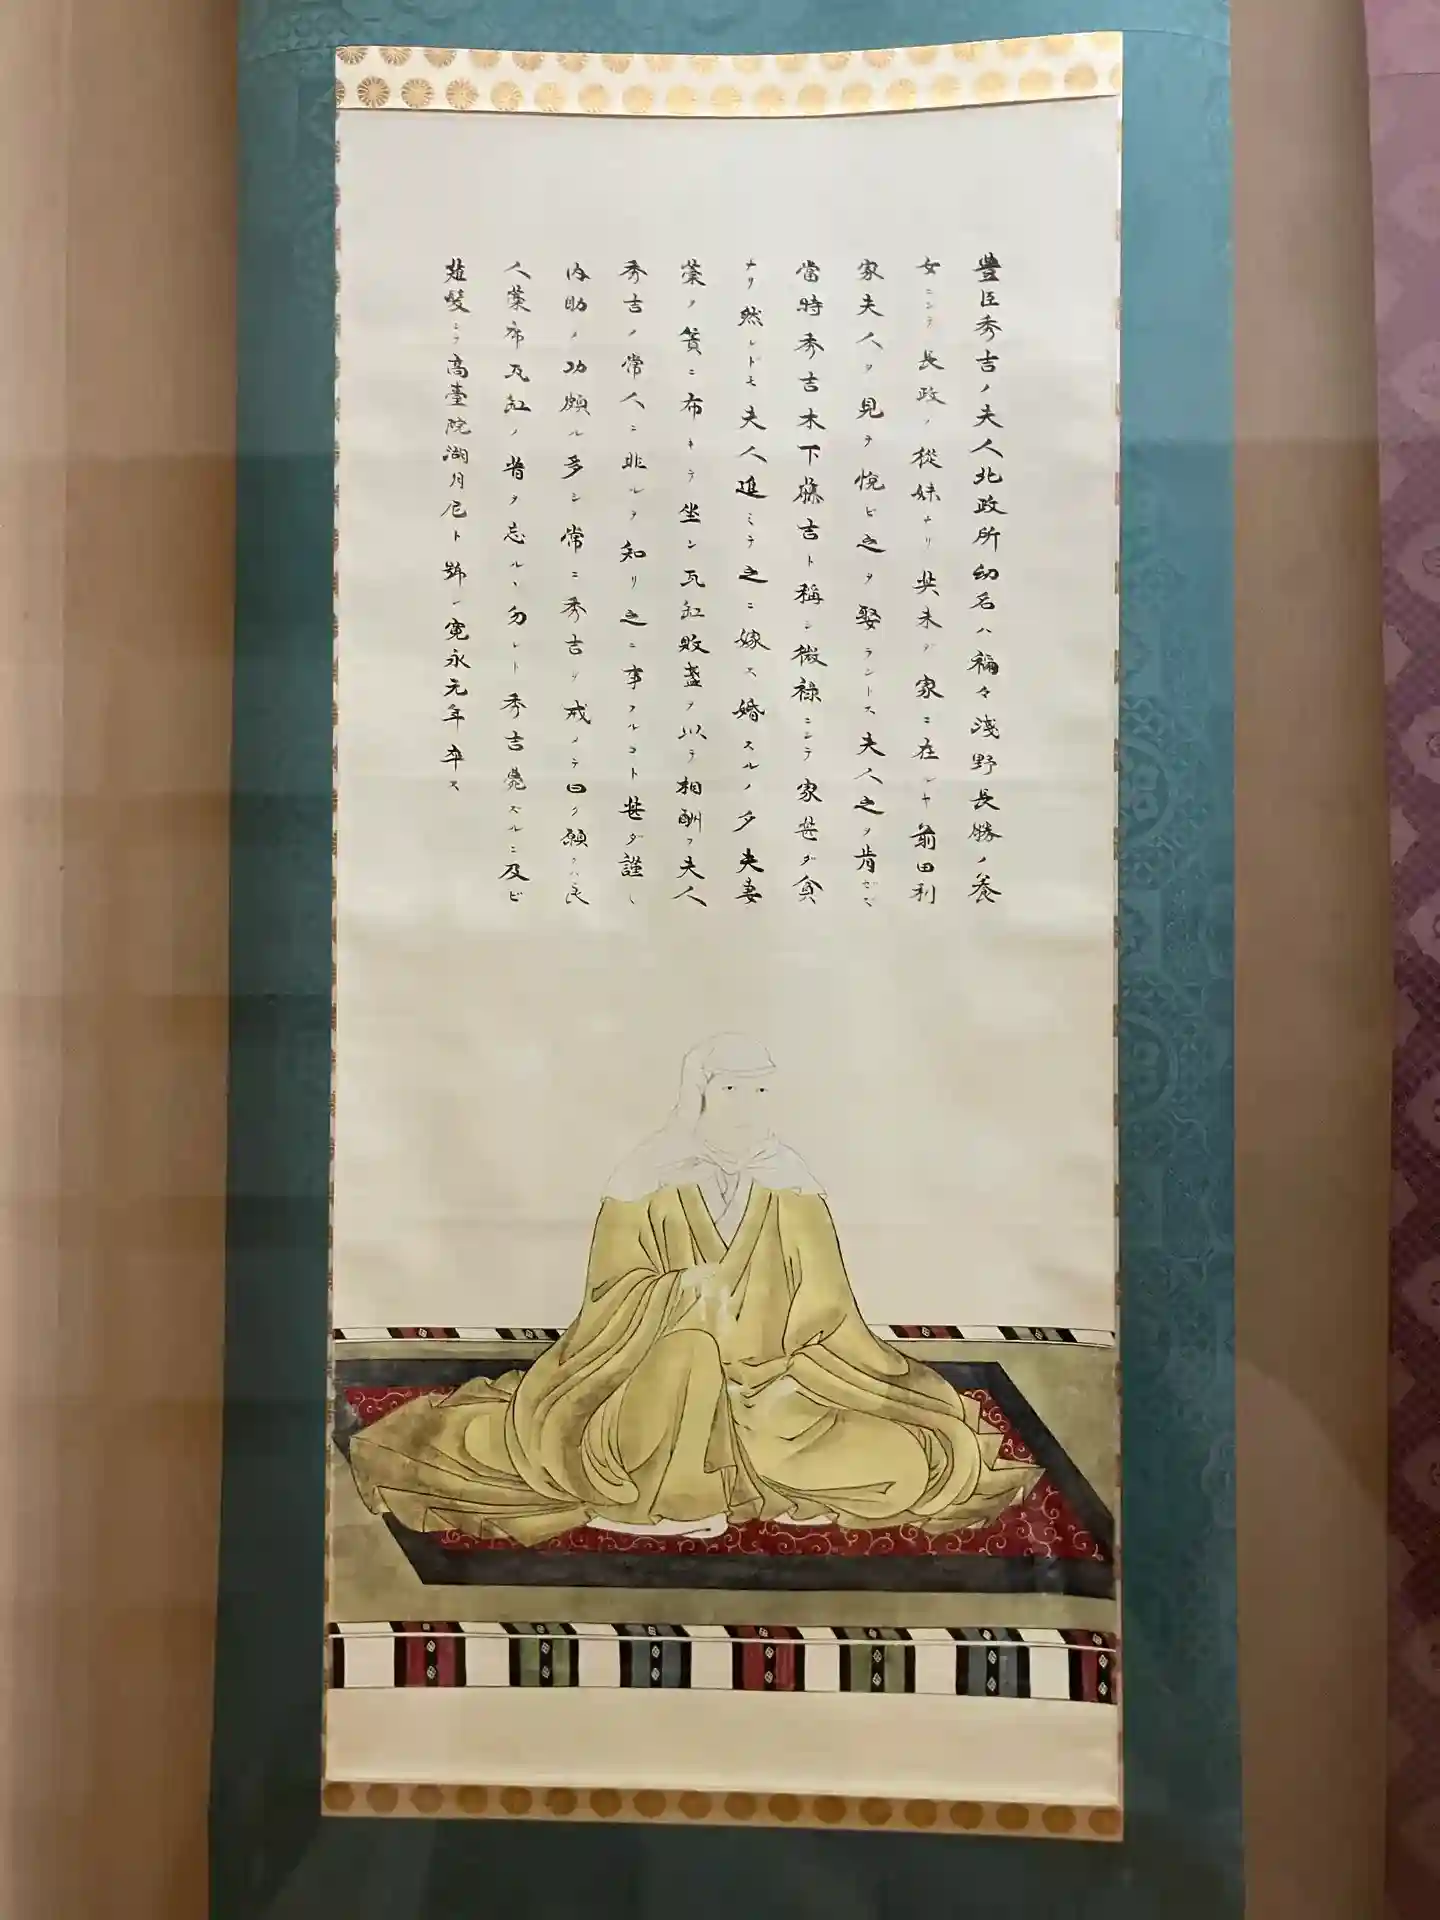 豊臣秀吉ノ夫人北政所幼名ハ禰々淺野長勝ノ養
女ニシテ長政ノ從妹ナリ其未ダ家ニ在レヤ前田利
家夫人ヲ見テ悦ビ之ヲ娶ラントス夫人之ヲ肯ゼズ
當時秀吉木下藤吉ト稱シ微禄ニシテ家甚ダ貧
ナリ然レドモ夫人進ミテ之ニ嫁ス婚スルノ夕夫妻
藁ノ簀ニ布キテ坐シ瓦缸敗盞ヲ以テ相酬フ夫人
秀吉ノ常人ニ非ルヲ知リ之ニ事フルコト甚ダ謹シ
内助ノ功頗ル多シ常ニ秀吉ヲ戒メテ曰ク願クハ良
人藁布瓦缸ノ昔ヲ忘ルヽ勿レト秀吉薨スルニ及ビ
薙髪シテ高臺院湖月尼ト號ス寛永元年卒ス